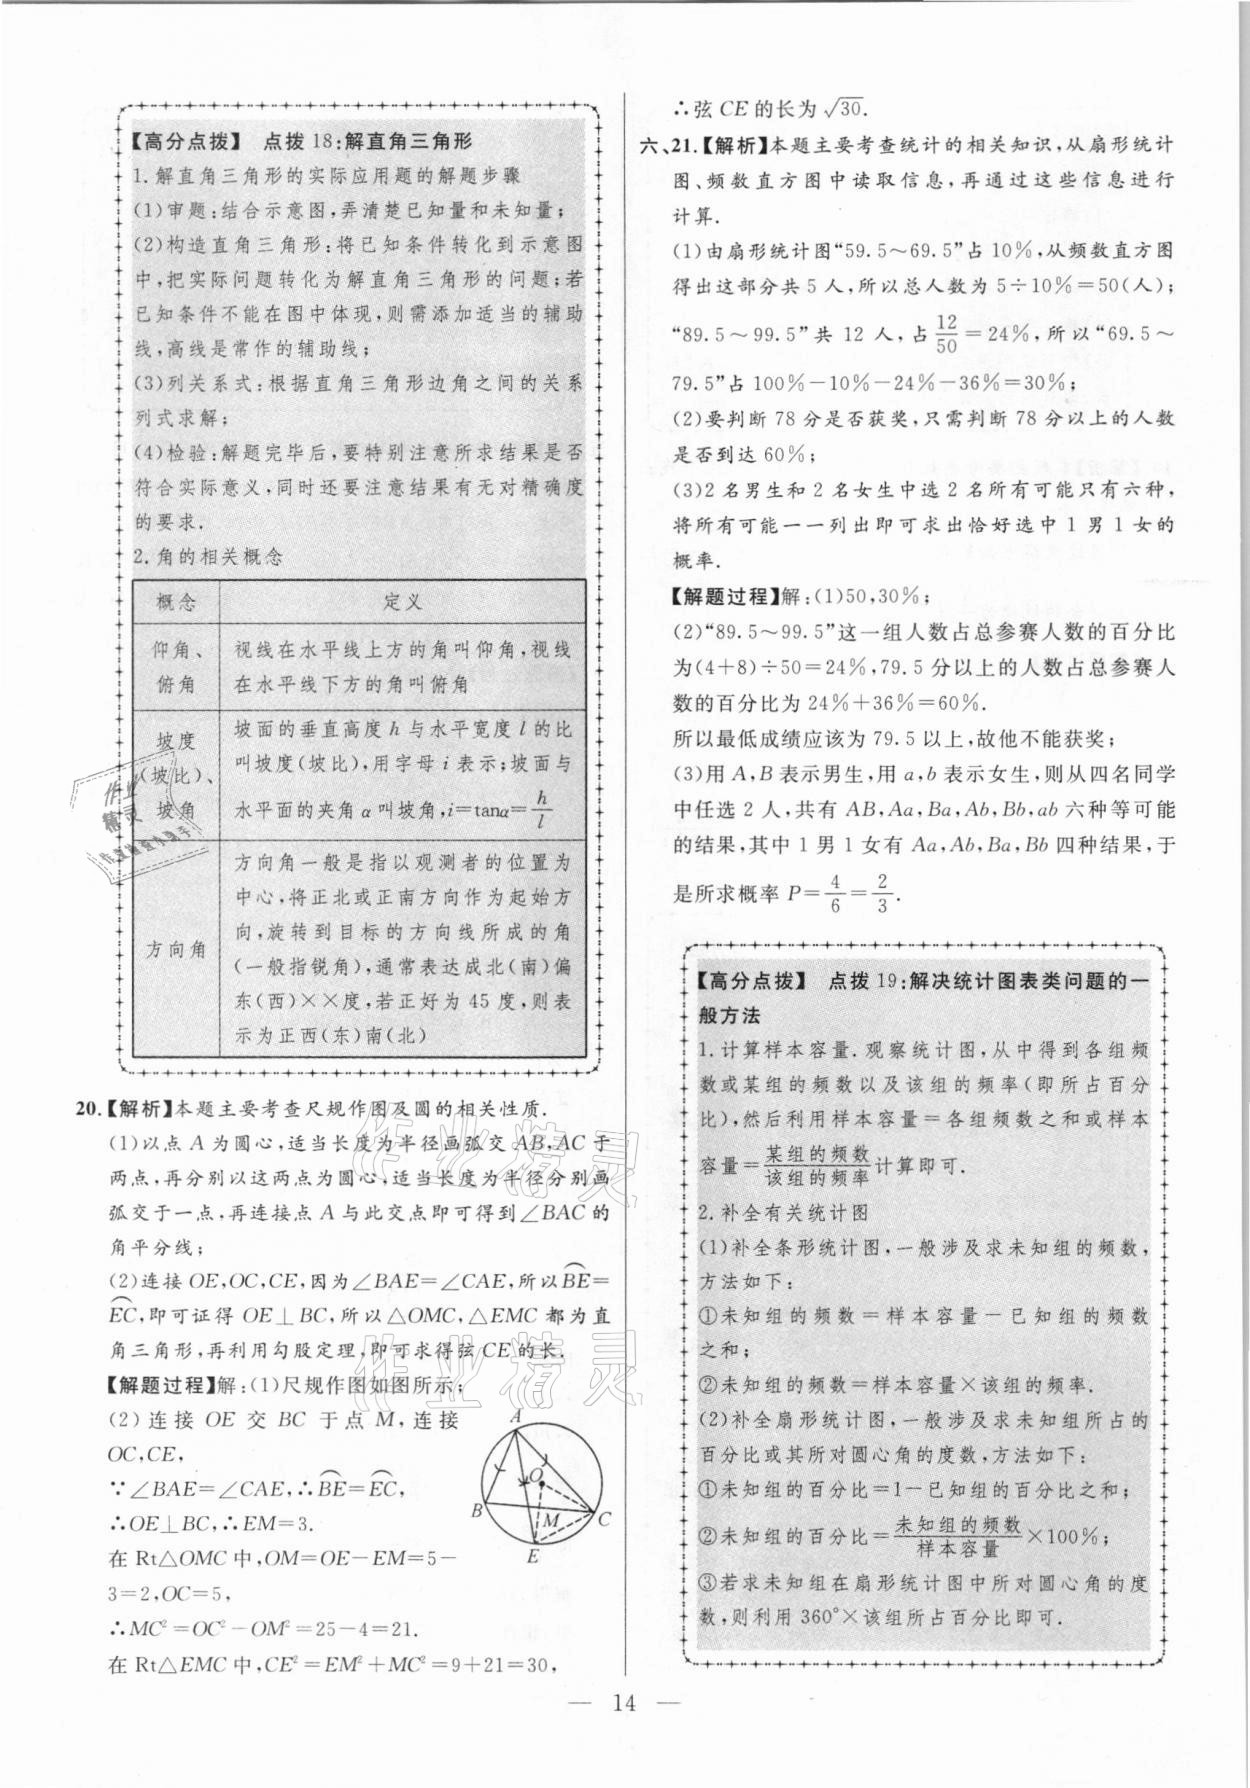 【高分点拨】 点拨18:解直角三角形
1.解直角三角形的实际应用题的解题步骤
(1)审题:结合示意图,弄清楚已知量和未知量;
(2)构造直角三角形:将已知条件转化到示意图
中,把实际问题转化为解直角三角形的问题;若
已知条件不能在图中体现,则需添加适当的辅助
线,高线是常作的辅助线;
(3)列关系式:根据直角三角形边角之间的关系
列式求解;
(4)检验:解题完毕后,要特别注意所求结果是否
符合实际意义,同时还要注意结果有无对精确度
的要求.
2.角的相关概念
概念 定义
仰角、俯角 视线在水平线上方的角叫仰角,视线
在水平线下方的角叫俯角
坡度(坡比)、坡角 坡面的垂直高度h与水平宽度l的比
叫坡度(坡比),用字母i表示;坡面与
水平面的夹角α叫坡角,i=tanα=h/l
方向角 方向角一般是指以观测者的位置为
中心,将正北或正南方向作为起始方
向,旋转到目标的方向线所成的角
(一般指锐角),通常表达成北(南)偏
东(西)××度,若正好为45度,则表
示为正西(东)南(北)
20.【解析】本题主要考查尺规作图及圆的相关性质.
(1)以点A为圆心,适当长度为半径画弧交AB,AC于
两点,再分别以这两点为圆心,适当长度为半径分别画
弧交于一点,再连接点A与此交点即可得到∠BAC的
角平分线;
(2)连接OE,OC,CE,因为∠BAE=∠CAE,所以BE⌒=
EC⌒,即可证得OE⊥BC,所以△OMC,△EMC都为直
角三角形,再利用勾股定理,即可求得弦CE的长.
【解题过程】解:(1)尺规作图如图所示;
(2)连接OE交BC于点M,连接
OC,CE,
∵∠BAE=∠CAE,∴BE⌒=EC⌒,
∴OE⊥BC,∴EM=3.
在Rt△OMC中,OM=OE-EM=5-
3=2,OC=5,
∴MC²=OC²-OM²=25-4=21.
在Rt△EMC中,CE²=EM²+MC²=9+21=30,
A
O
B
M
C
E
∴弦CE的长为√30.
六、21.【解析】本题主要考查统计的相关知识,从扇形统计
图、频数直方图中读取信息,再通过这些信息进行
计算.
(1)由扇形统计图“59.5～69.5”占10%,从频数直方图
得出这部分共5人,所以总人数为5÷10%=50(人);
“89.5～99.5”共12人,占12/50=24%,所以“69.5～
79.5”占100%-10%-24%-36%=30%;
(2)要判断78分是否获奖,只需判断78分以上的人数
是否到达60%;
(3)2名男生和2名女生中选2名所有可能只有六种,
将所有可能一一列出即可求出恰好选中1男1女的
概率.
【解题过程】解:(1)50,30%;
(2)“89.5～99.5”这一组人数占总参赛人数的百分比
为(4+8)÷50=24%,79.5分以上的人数占总参赛人
数的百分比为24%+36%=60%.
所以最低成绩应该为79.5以上,故他不能获奖;
(3)用A,B表示男生,用a,b表示女生,则从四名同学
中任选2人,共有AB,Aa,Ba,Ab,Bb,ab六种等可能
的结果,其中1男1女有Aa,Ab,Ba,Bb四种结果,于
是所求概率P=4/6=2/3.
【高分点拨】 点拨19:解决统计图表类问题的一
般方法
1.计算样本容量.观察统计图,从中得到各组频
数或某组的频数以及该组的频率(即所占百分
比),然后利用样本容量=各组频数之和或样本
容量=某组的频数/该组的频率计算即可.
2.补全有关统计图
(1)补全条形统计图,一般涉及求未知组的频数,
方法如下:
①未知组的频数=样本容量-已知组的频数
之和;
②未知组的频数=样本容量×该组的频率.
(2)补全扇形统计图,一般涉及求未知组所占的
百分比或其所对圆心角的度数,方法如下:
①未知组的百分比=1-已知组的百分比之和;
②未知组的百分比=未知组的频数/样本容量×100%;
③若求未知组在扇形统计图中所对圆心角的度
数,则利用360°×该组所占百分比即可.
作业精灵
作业精灵
作业
精灵
— 14 —